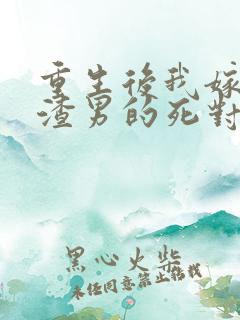 重生後我嫁
渣男的死對
黑心火柴
未经同意禁止转载